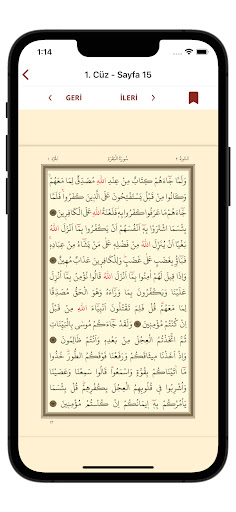 1:14
1. Cüz - Sayfa 15
GERİ
İLERİ
سورة البقرة
وَلَمَّا جَاءَهُمْ كِتَابٌ مِنْ عِنْدِ اللّٰهِ مُصَدِّقٌ لِمَا مَعَهُمْ
وَكَانُوا مِنْ قَبْلُ يَسْتَفْتِحُونَ عَلَى الَّذِينَ كَفَرُوا فَلَمَّا
جَاءَهُمْ مَا عَرَفُوا كَفَرُوا بِهِ فَلَعْنَةُ اللّٰهِ عَلَى الْكَافِرِينَ
بِئْسَمَا اشْتَرَوْا بِهِ أَنْفُسَهُمْ أَنْ يَكْفُرُوا بِمَا أَنْزَلَ اللّٰهُ
بَغْيًا أَنْ يُنَزِّلَ اللّٰهُ مِنْ فَضْلِهِ عَلَى مَنْ يَشَاءُ مِنْ عِبَادِهِ
فَبَاءُوا بِغَضَبٍ عَلَى غَضَبٍ وَلِلْكَافِرِينَ عَذَابٌ مُهِينٌ
وَإِذَا قِيلَ لَهُمْ آمِنُوا بِمَا أَنْزَلَ اللّٰهُ قَالُوا نُؤْمِنُ بِمَا أُنْزِلَ
عَلَيْنَا وَيَكْفُرُونَ بِمَا وَرَاءَهُ وَهُوَ الْحَقُّ مُصَدِّقًا
لِمَا مَعَهُمْ قُلْ فَلِمَ تَقْتُلُونَ أَنْبِيَاءَ اللّٰهِ مِنْ قَبْلُ
إِنْ كُنْتُمْ مُؤْمِنِينَ وَلَقَدْ جَاءَكُمْ مُوسَى بِالْبَيِّنَاتِ
ثُمَّ اتَّخَذْتُمُ الْعِجْلَ مِنْ بَعْدِهِ وَأَنْتُمْ ظَالِمُونَ
وَإِذْ أَخَذْنَا مِيثَاقَكُمْ وَرَفَعْنَا فَوْقَكُمُ الطُّورَ خُذُوا
مَا آتَيْنَاكُمْ بِقُوَّةٍ وَاسْمَعُوا قَالُوا سَمِعْنَا وَعَصَيْنَا
وَأُشْرِبُوا فِي قُلُوبِهِمُ الْعِجْلَ بِكُفْرِهِمْ قُلْ بِئْسَمَا
يَأْمُرُكُمْ بِهِ إِيمَانُكُمْ إِنْ كُنْتُمْ مُؤْمِنِينَ